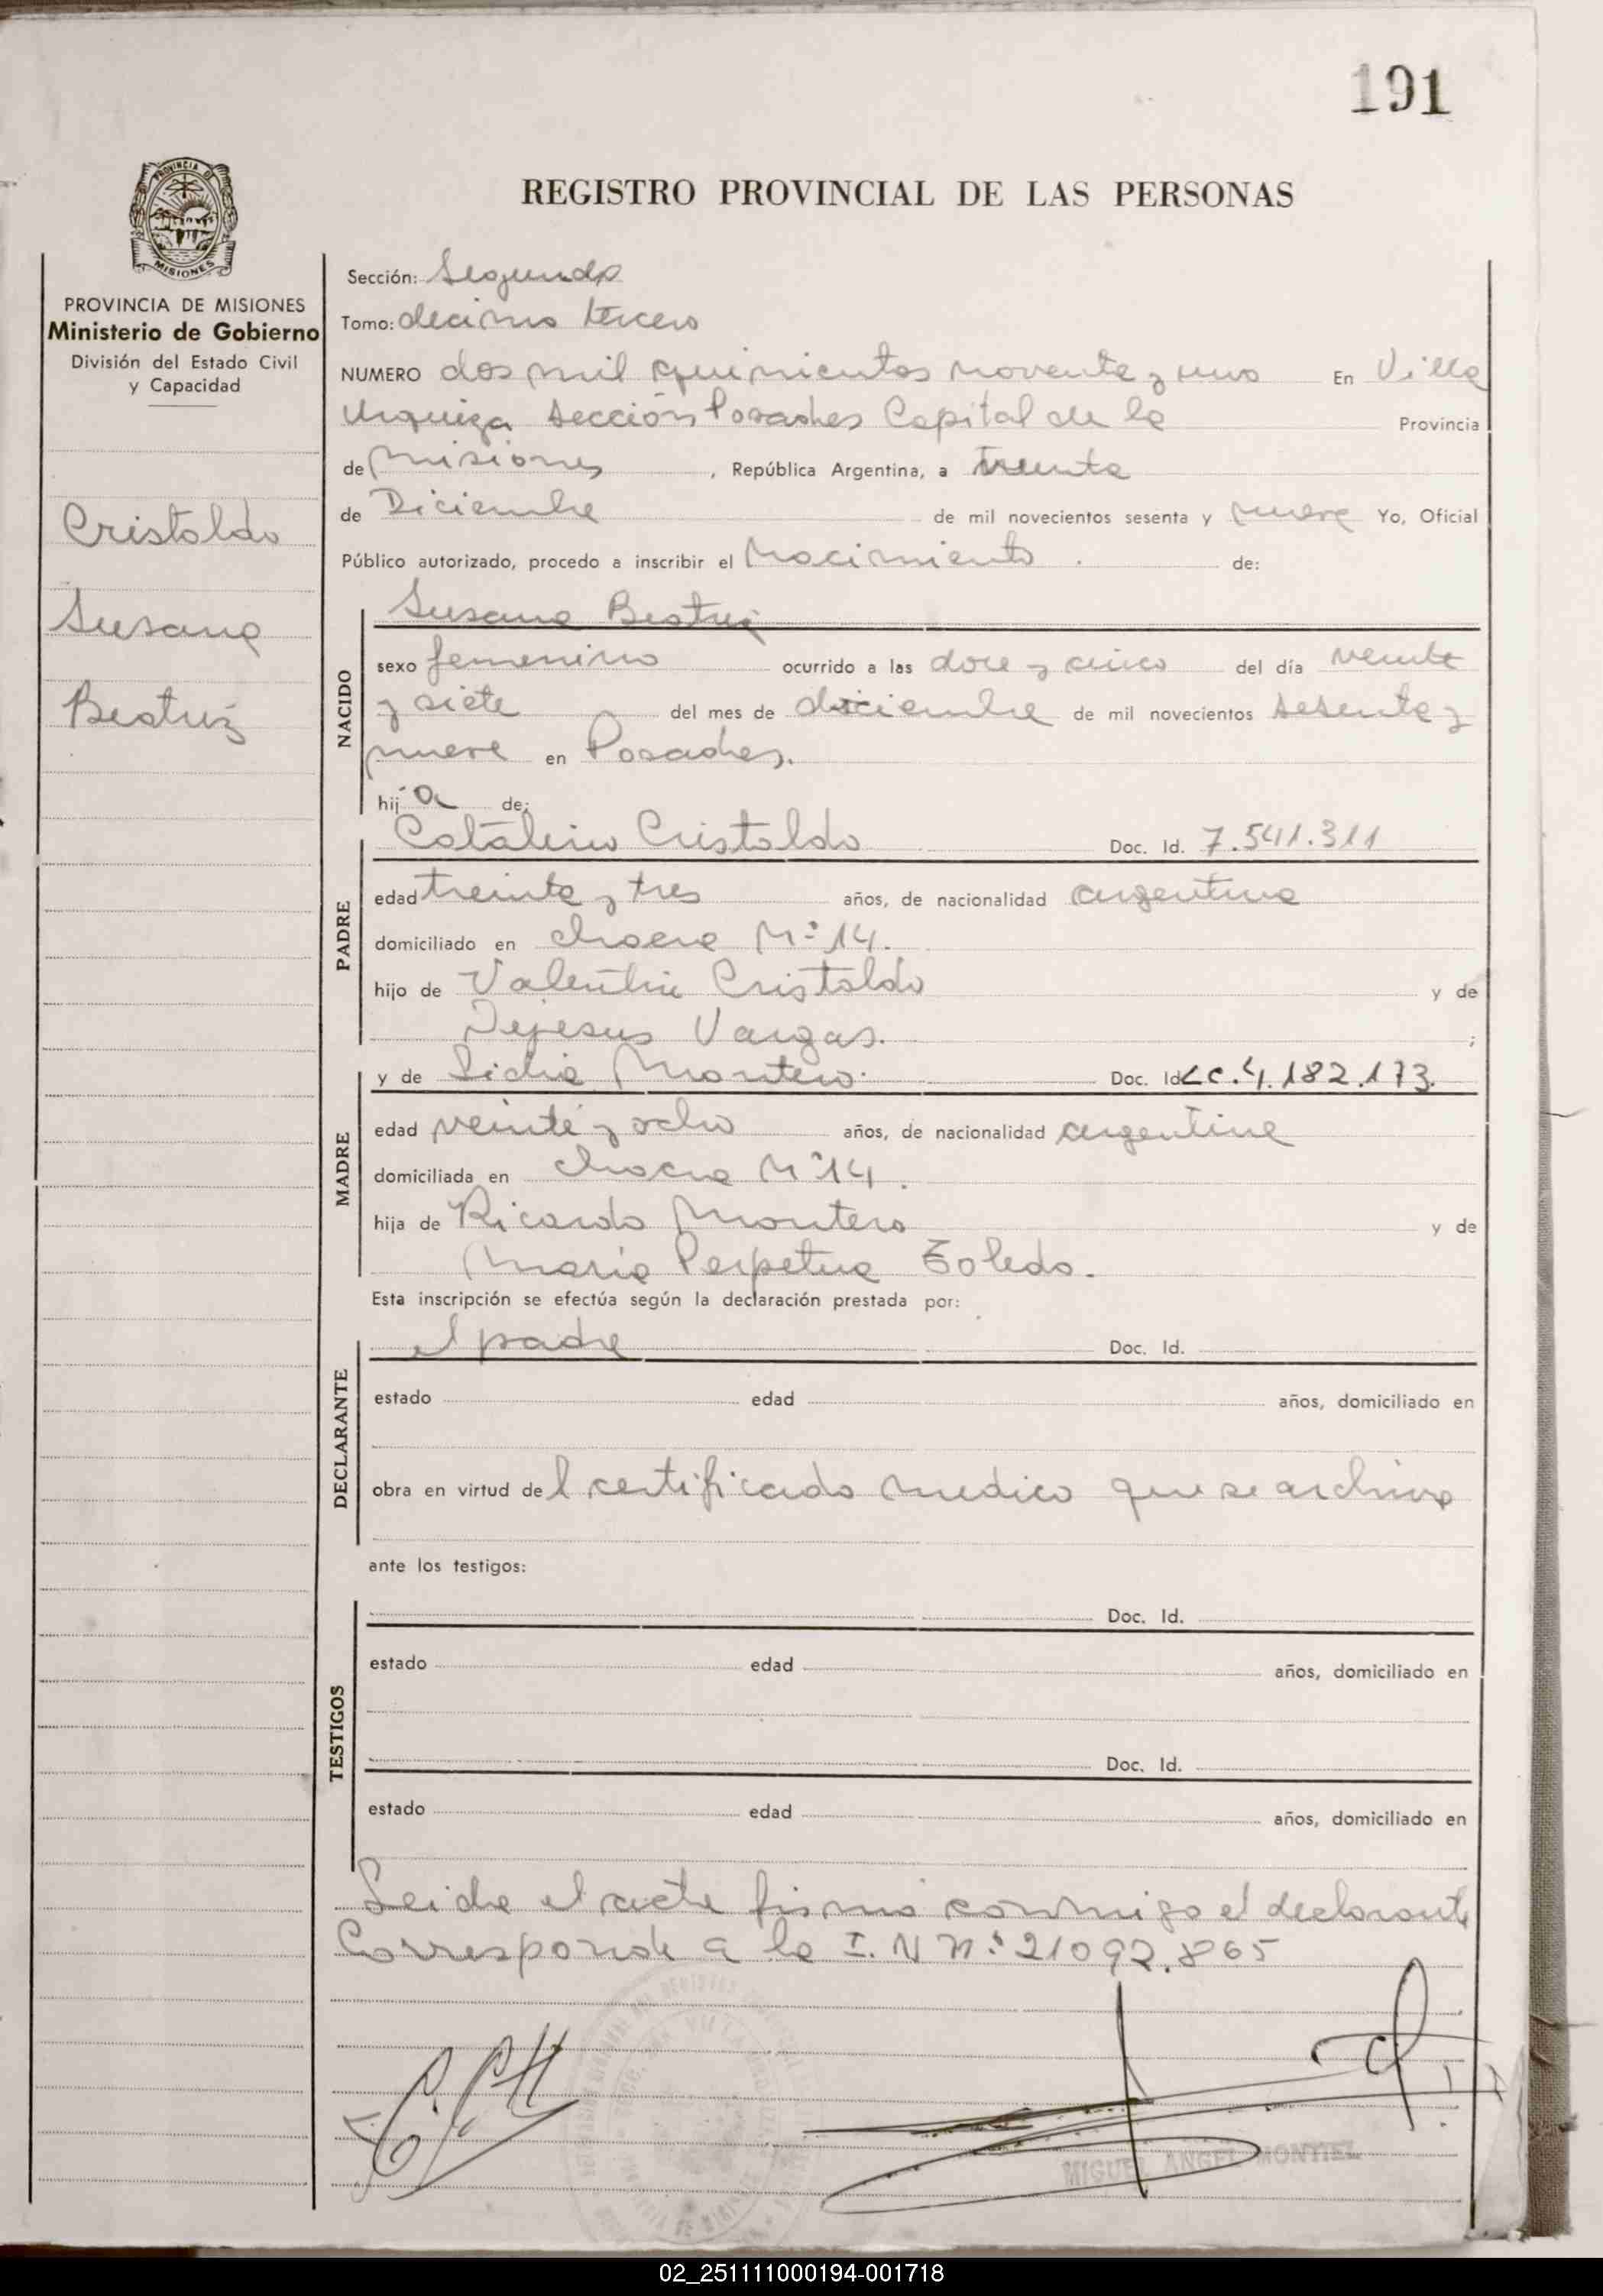 191
REGISTRO PROVINCIAL DE LAS PERSONAS
PROVINCIA DE MISIONES
PROVINCIA DE MISIONES
Ministerio de Gobierno
División del Estado Civil
y Capacidad
Cristaldo
Susana
Beatriz
Sección: Segunda
Tomo: decimo tercero
NUMERO dos mil quinientos noventa y uno En Villa
Urquiza Sección Posadas Capital de la Provincia
de Misiones, República Argentina, a treinta
de Diciembre de mil novecientos sesenta y nueve Yo, Oficial
Público autorizado, procedo a inscribir el Nacimiento de:
NACIDO
Susana Beatriz
sexo femenino ocurrido a las doce y cinco del día veinte
y siete del mes de diciembre de mil novecientos sesenta y
nueve en Posadas.
hija de:
PADRE
Catalino Cristaldo Doc. Id. 7.541.311
edad treinta y tres años, de nacionalidad argentina
domiciliado en chacra Nº 14.
hijo de Valentin Cristaldo y de
Dejesus Vargas. ;
MADRE
y de Lidia Montero. Doc. Id LC.4.182.173.
edad veinte y ocho años, de nacionalidad argentina
domiciliada en chacra Nº 14.
hija de Ricardo Montero y de
Maria Perpetua Toledo.
Esta inscripción se efectúa según la declaración prestada por:
DECLARANTE
el padre Doc. Id.
estado edad años, domiciliado en
obra en virtud del certificado medico que se archiva
ante los testigos:
TESTIGOS
Doc. Id.
estado edad años, domiciliado en
Doc. Id.
estado edad años, domiciliado en
Leida el acta firma conmigo el declarante
Corresponde a la I. N n.º 21092.865
MIGUEL ANGEL MONTIEL
02_251111000194-001718